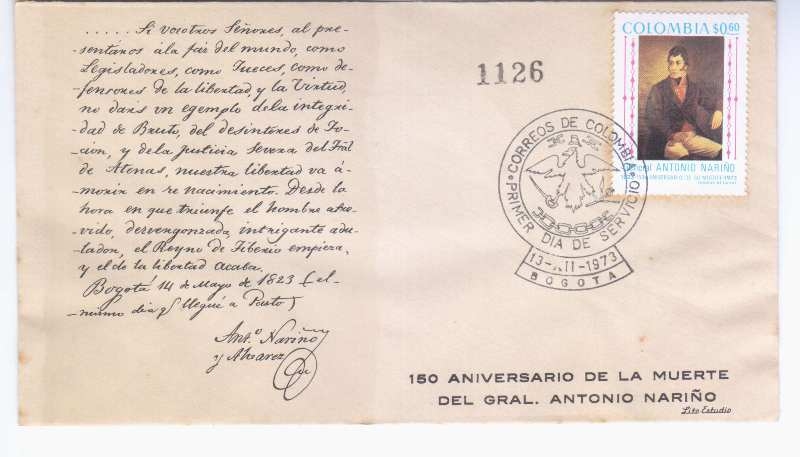 ..... Si vosotros Señores, al pre-
sentáros ála faz del mundo, como
Legisladores, como Jueces, como de-
fensores de la libertad, y la Virtud,
no dais un egemplo dela integri-
dad de Bruto, del desinteres de Fo-
cion, y dela justicia severa del Trál
de Atenas, nuestra libertad va á
morir en re nacimiento. Desde la
hora en que triunfe el hombre atre-
vido, desvergonzado, intrigante adu-
lador, el Reyno de Tiberio empieza,
y el de la libertad acaba.
Bogotá 14 de Mayo de 1823 (el
mismo dia q llegué a Pasto)
Ant.º Nariño
y Alvarez
1126
COLOMBIA $0,60
ANTONIO NARIÑO
CORREOS DE COLOMBIA
PRIMER DIA DE SERVICIO
13-XII-1973
BOGOTA
150 ANIVERSARIO DE LA MUERTE
DEL GRAL. ANTONIO NARIÑO
Lito Estudio